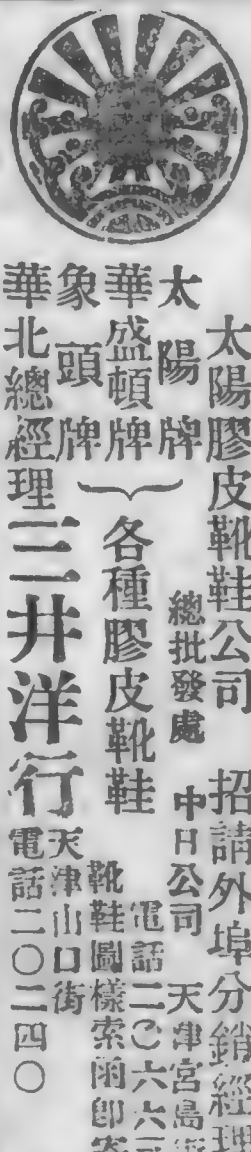 太陽膠皮靴鞋公司 招請外埠分銷經理
太陽牌
華盛頓牌
象頭牌
各種膠皮靴鞋
總批發處 中日公司 天津宮島
電話二〇六六
靴鞋圖樣索函即寄
華北總經理 三井洋行 天津山口街
電話二〇二四〇